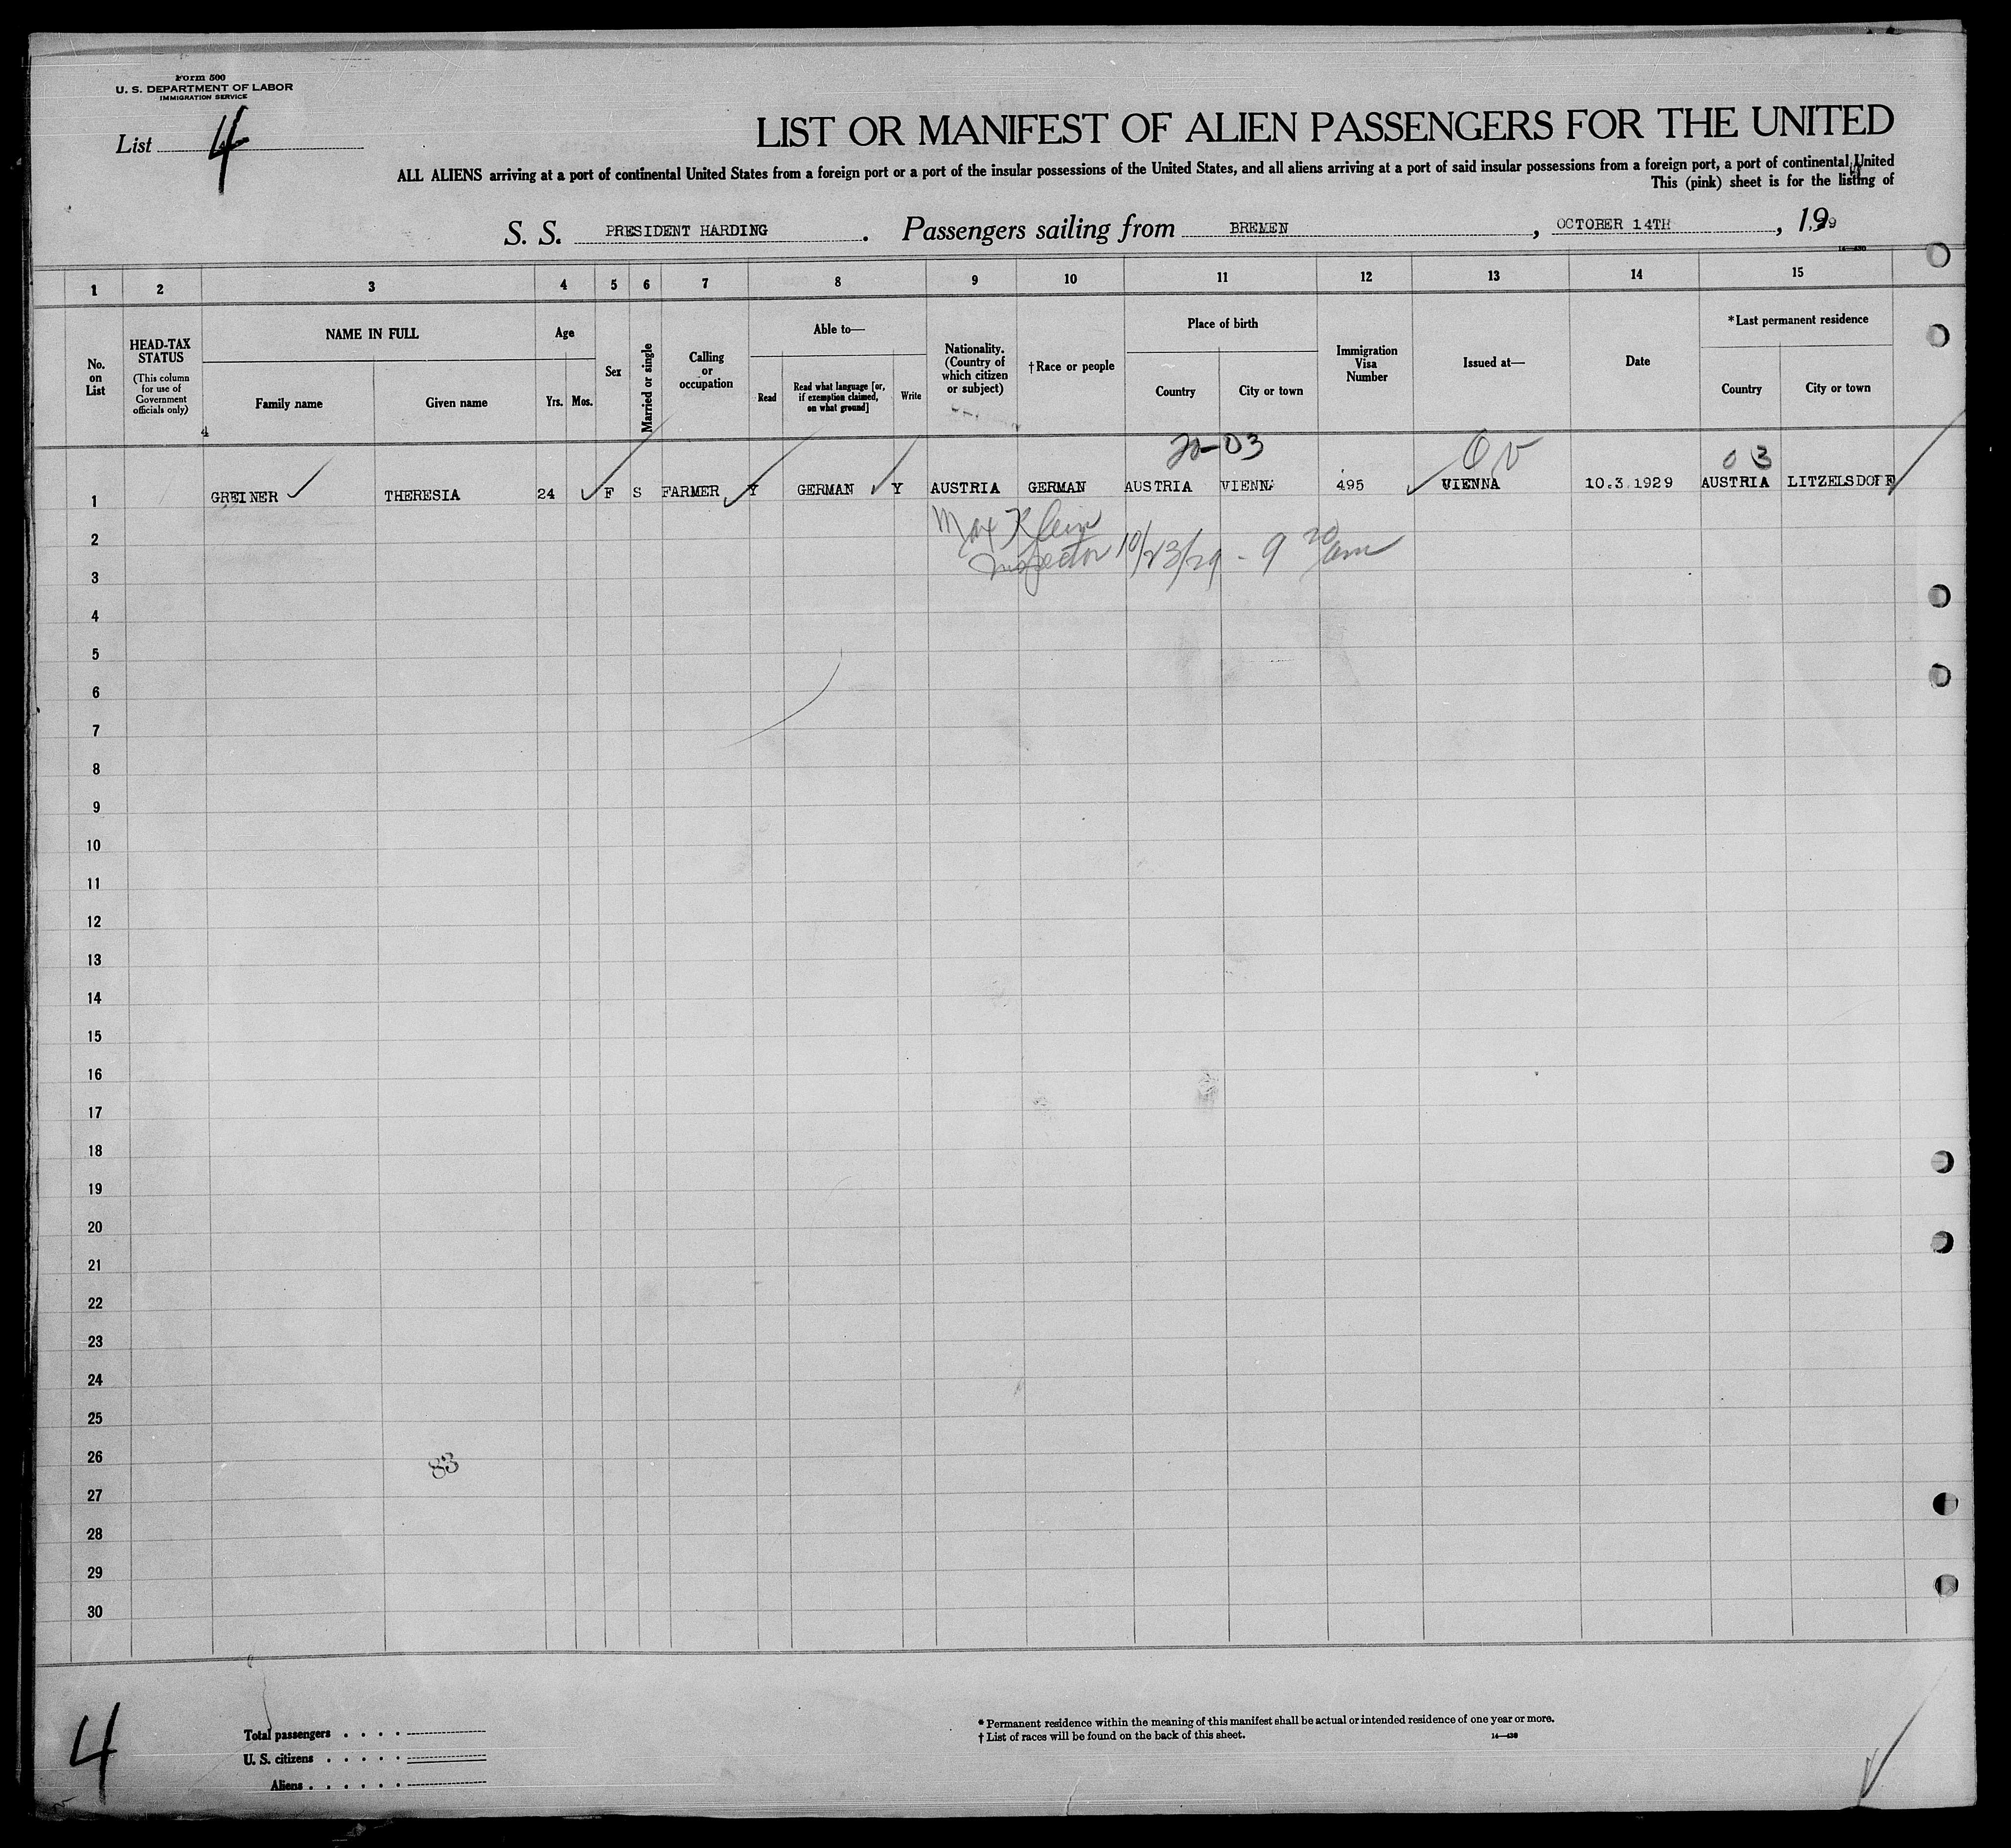 Form 500
U. S. DEPARTMENT OF LABOR
IMMIGRATION SERVICE
List 4
LIST OR MANIFEST OF ALIEN PASSENGERS FOR THE UNITED
ALL ALIENS arriving at a port of continental United States from a foreign port or a port of the insular possessions of the United States, and all aliens arriving at a port of said insular possessions from a foreign port, a port of continental United
This (pink) sheet is for the listing of
S. S. PRESIDENT HARDING . Passengers sailing from BREMEN , OCTOBER 14TH , 1929
1 2 3 4 5 6 7 8 9 10 11 12 13 14 15
No. on List
HEAD-TAX STATUS
(This column for use of Government officials only)
NAME IN FULL
Family name
Given name
Age
Yrs.
Mos.
Sex
Married or single
Calling or occupation
Able to—
Read
Read what language [or, if exemption claimed, on what ground]
Write
Nationality. (Country of which citizen or subject)
†Race or people
Place of birth
Country
City or town
Immigration Visa Number
Issued at—
Date
*Last permanent residence
Country
City or town
4
20-03
03
1 GREINER THERESIA 24 F S FARMER Y GERMAN Y AUSTRIA GERMAN AUSTRIA VIENNA 495 VIENNA 10.3.1929 AUSTRIA LITZELSDORF
Max Klein
2
Inspector 10/23/29 - 9 20 am
3
4
5
6
7
8
9
10
11
12
13
14
15
16
17
18
19
20
21
22
23
24
25
26
83
27
28
29
30
4
Total passengers . . . .
U. S. citizens . . . . .
Aliens . . . . . .
* Permanent residence within the meaning of this manifest shall be actual or intended residence of one year or more.
† List of races will be found on the back of this sheet.
14—430